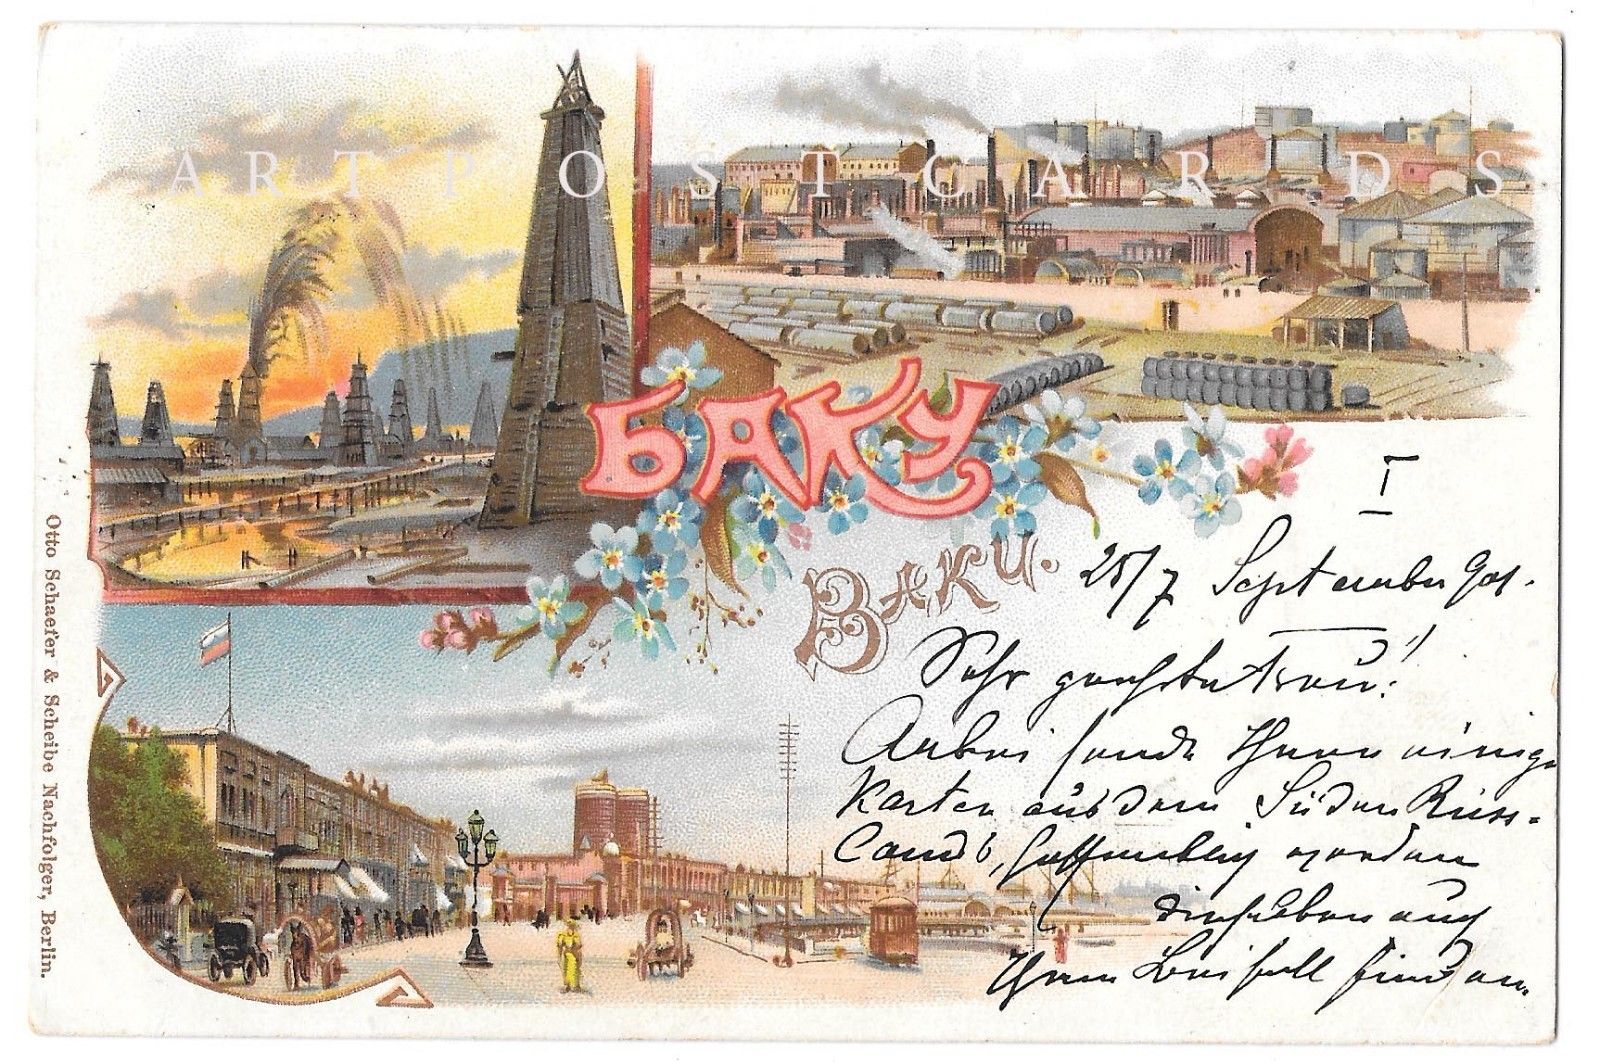 ART POSTCARDS
БАКУ
BAKU.
I
25/7 September 901.
Sehr geehrte Frau!
Anbei sende Ihnen einige
Karten aus dem Süden Russ-
lands, hoffentlich werden
dieselben auch
Ihren Beifall finden.
Otto Schaefer & Scheibe Nachfolger, Berlin.